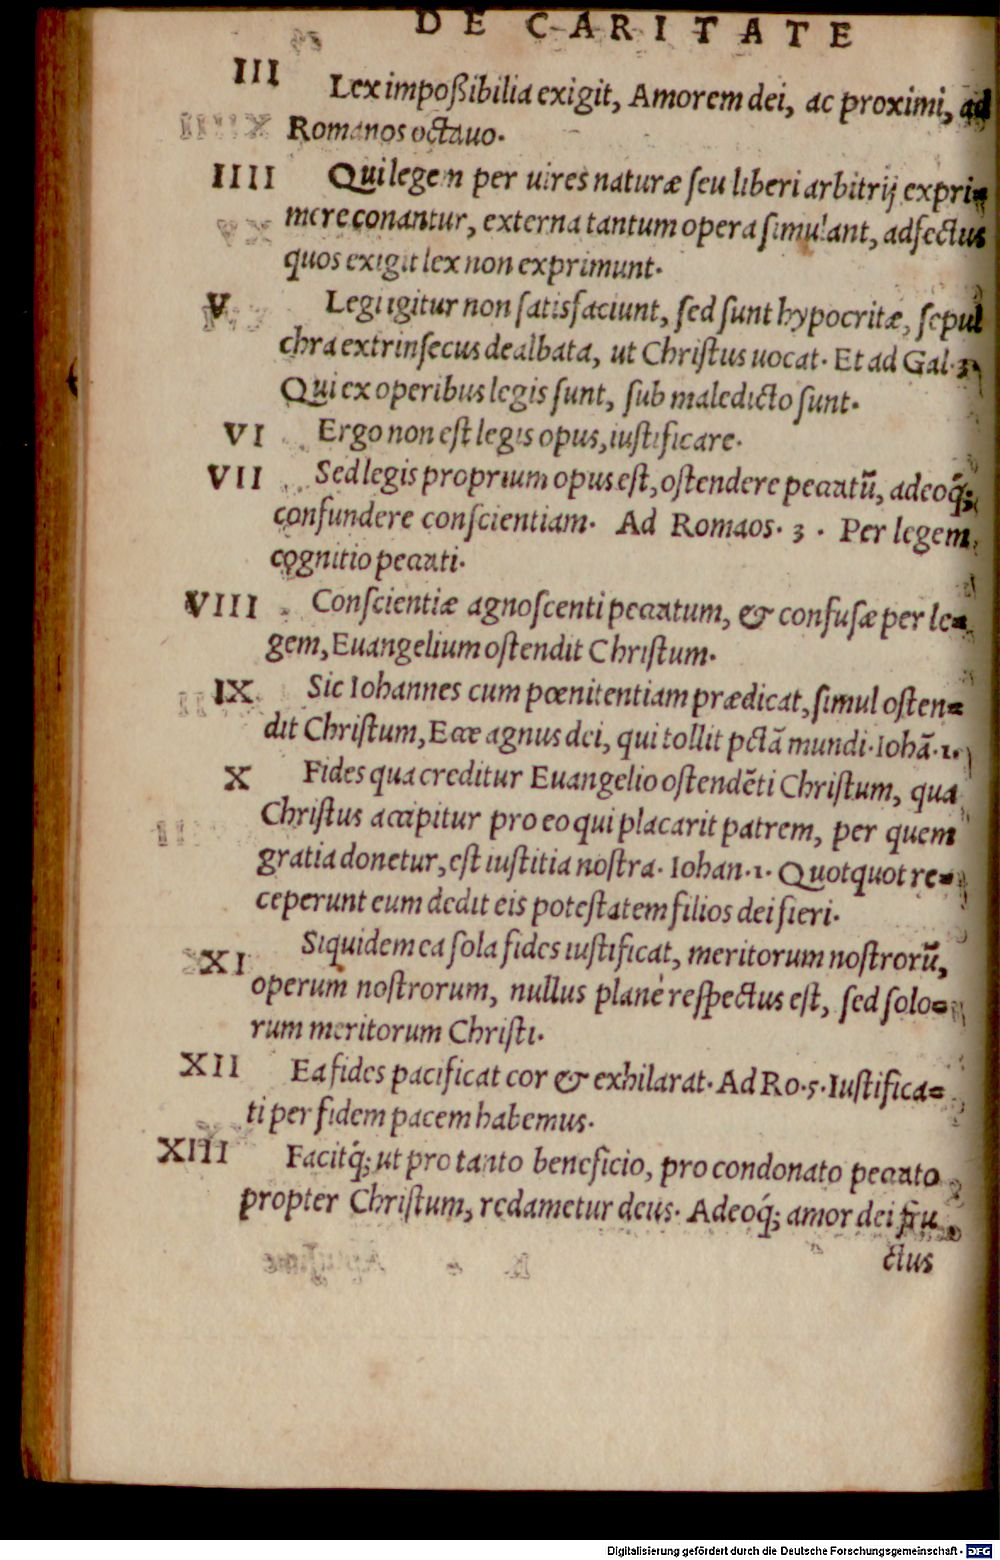 DE CARITATE
III Lex impoßibilia exigit, Amorem dei, ac proximi, ad
Romanos octauo.
IIII Qui legem per uires naturæ ſeu liberi arbitrij expri=
mere conantur, externa tantum opera ſimulant, adfectus
quos exigit lex non exprimunt.
V Legi igitur non ſatisfaciunt, ſed ſunt hypocritæ, ſepul
chra extrinſecus dealbata, ut Chriſtus uocat. Et ad Gal. 3.
Qui ex operibus legis ſunt, ſub maledicto ſunt.
VI Ergo non eſt legis opus, iuſtificare.
VII Sed legis proprium opus eſt, oſtendere peccatũ, adeoq́;
confundere conſcientiam. Ad Romaos. 3. Per legem
cognitio peccati.
VIII Conſcientiæ agnoſcenti peccatum, & confuſæ per le=
gem, Euangelium oſtendit Chriſtum.
IX Sic Iohannes cum pœnitentiam prædicat, ſimul oſten=
dit Chriſtum, Ecce agnus dei, qui tollit pctã mundi. Iohã. 1.
X Fides qua creditur Euangelio oſtendẽti Chriſtum, qua
Chriſtus accipitur pro eo qui placarit patrem, per quem
gratia donetur, eſt iuſtitia noſtra. Iohan. 1. Quotquot re=
ceperunt eum dedit eis poteſtatem filios dei fieri.
XI Siquidem ea ſola fides iuſtificat, meritorum noſtrorũ,
operum noſtrorum, nullus planè reſpectus eſt, ſed ſolo=
rum meritorum Chriſti.
XII Ea fides pacificat cor & exhilarat. Ad Ro. 5. Iuſtifica=
ti per fidem pacem habemus.
XIII Facitq́; ut pro tanto beneficio, pro condonato peccato
propter Chriſtum, redametur deus. Adeoq́; amor dei fru
ctus
Digitalisierung gefördert durch die Deutsche Forschungsgemeinschaft - DFG